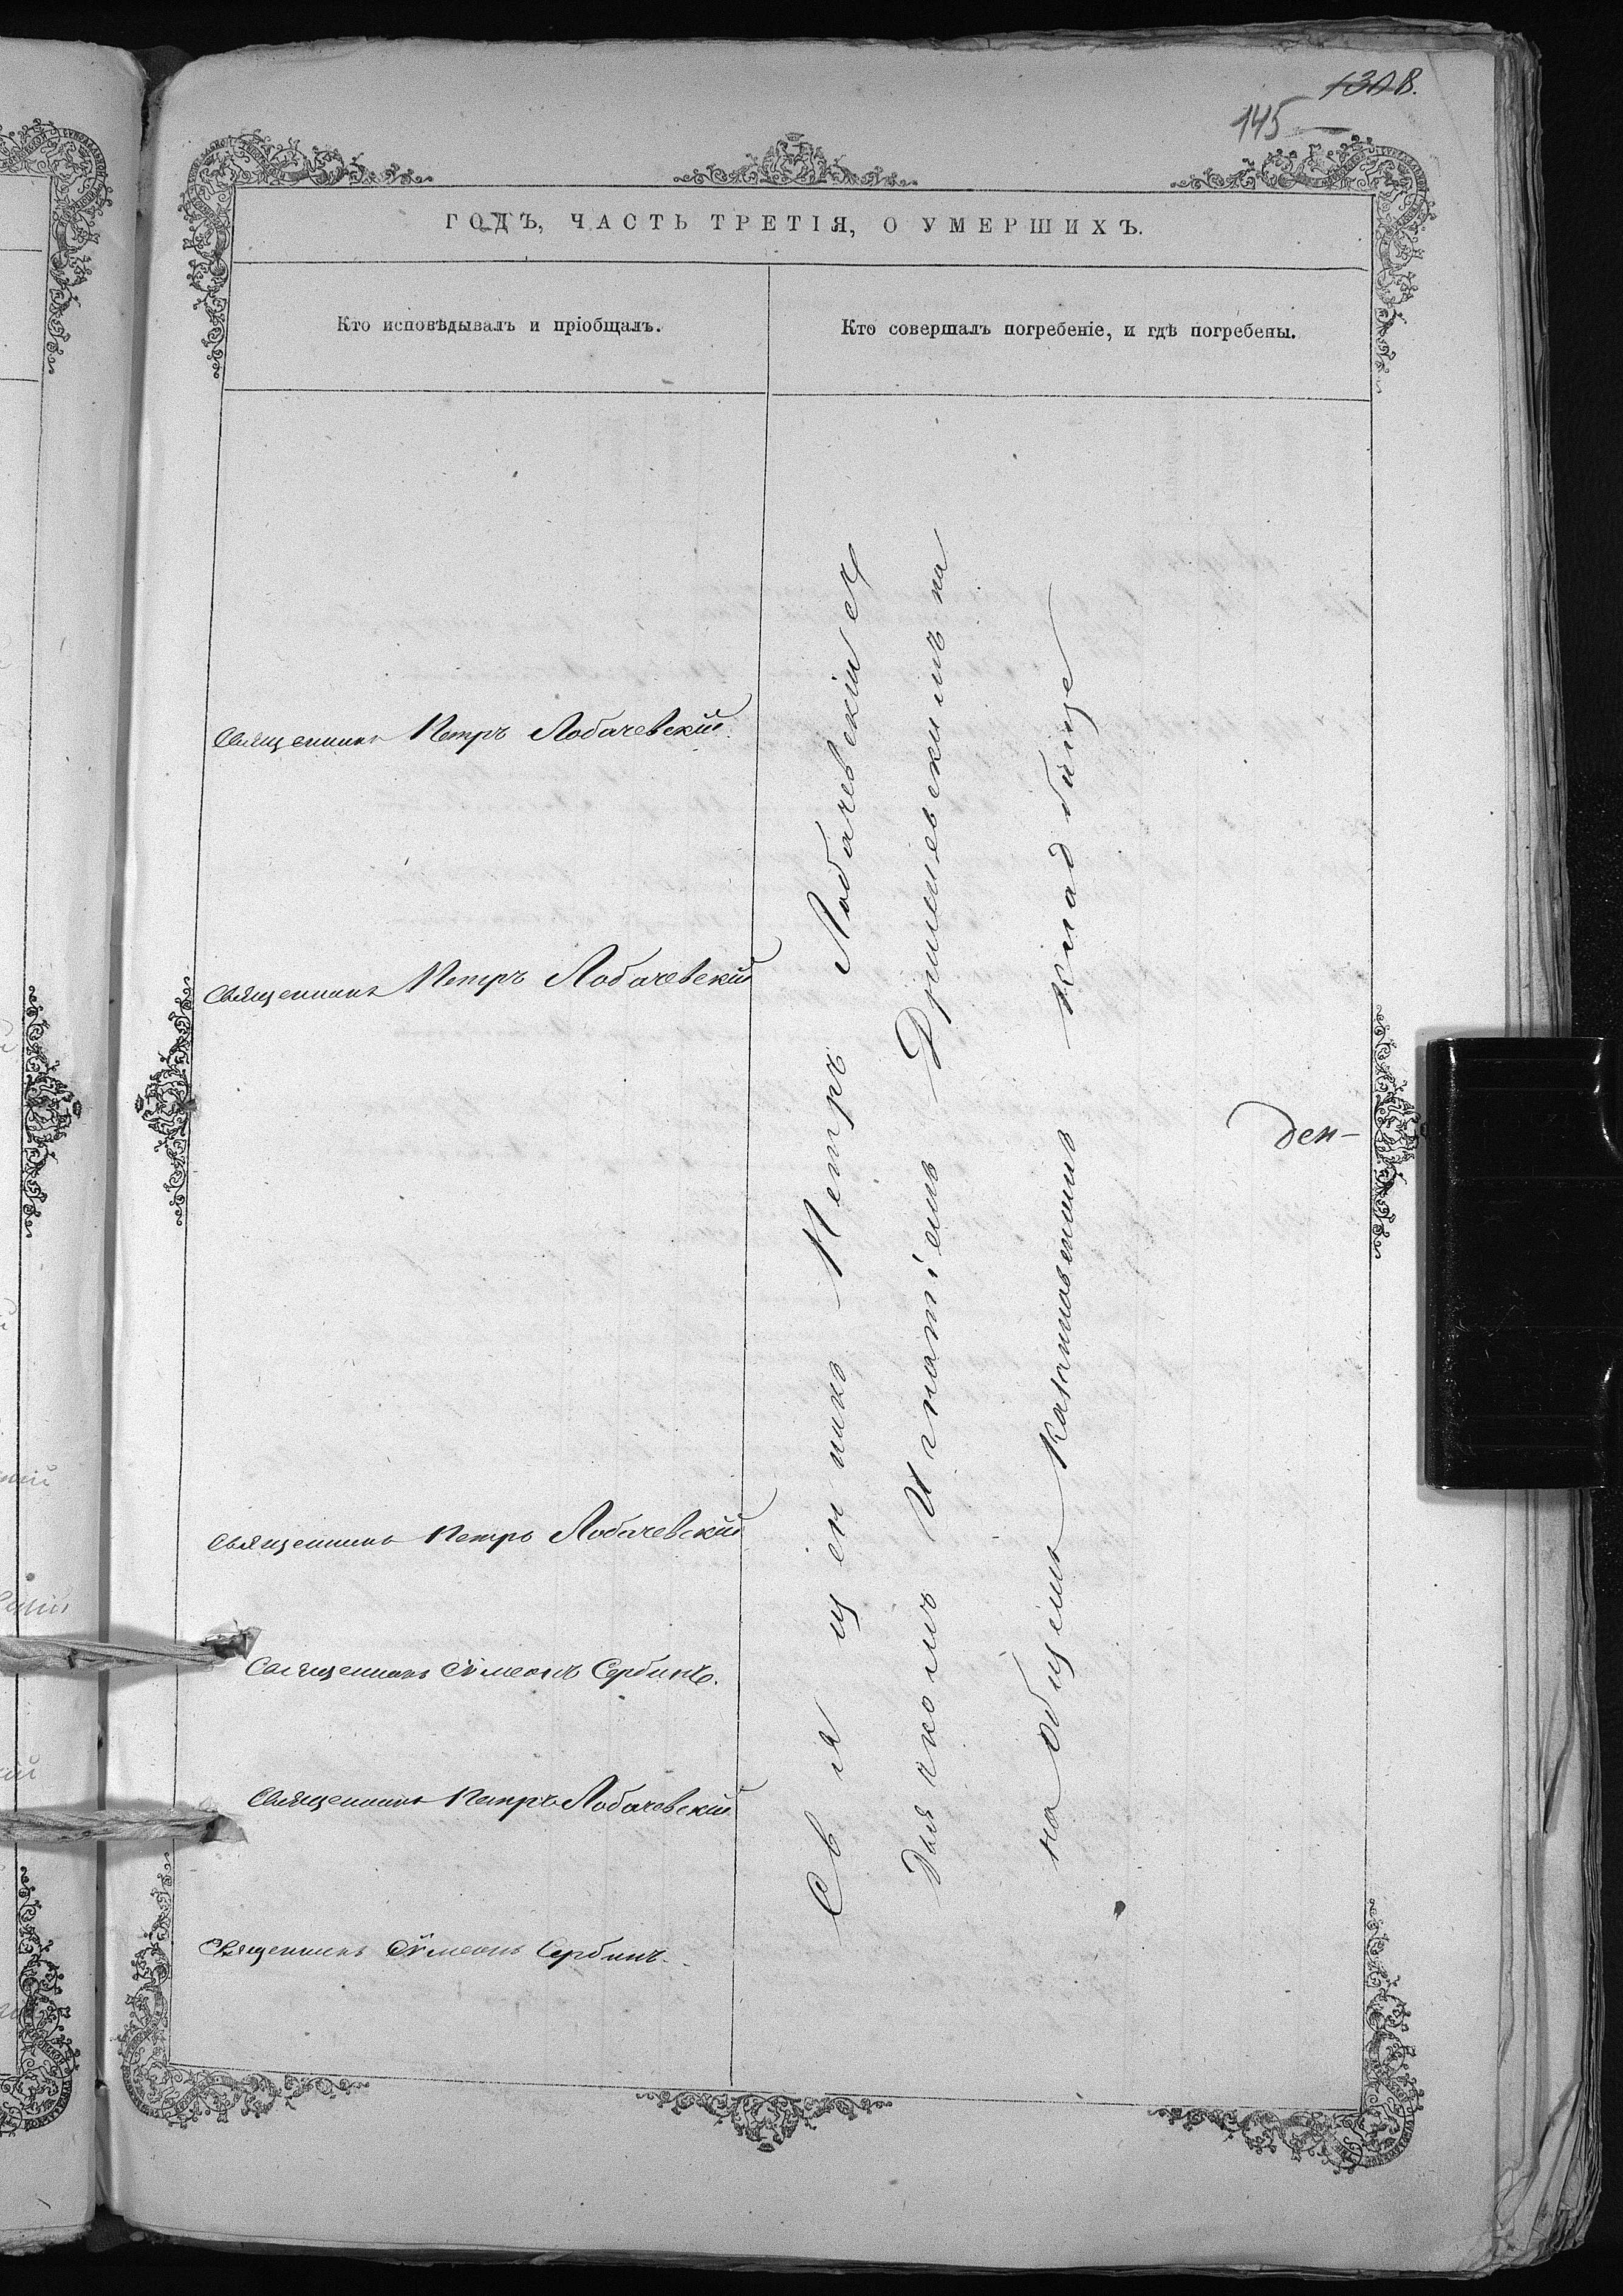 145
ГОДЪ, ЧАСТЬ ТРЕТІЯ, О УМЕРШИХЪ.
Кто исповѣдывалъ и пріобщалъ.
Кто совершалъ погребеніе, и гдѣ погребены.
Священникъ Петръ Лобачевскій
Священникъ Петръ Лобачевскій
Священникъ Петръ Лобачевскій
Священникъ Сѵмеонъ Сербинъ.
Священникъ Петръ Лобачевскій
Священникъ Сѵмеонъ Сербинъ.
Священникъ Петръ Лобачевскій
Дьячкомъ Игнатіемъ на
на общемъ кладбище
ден-